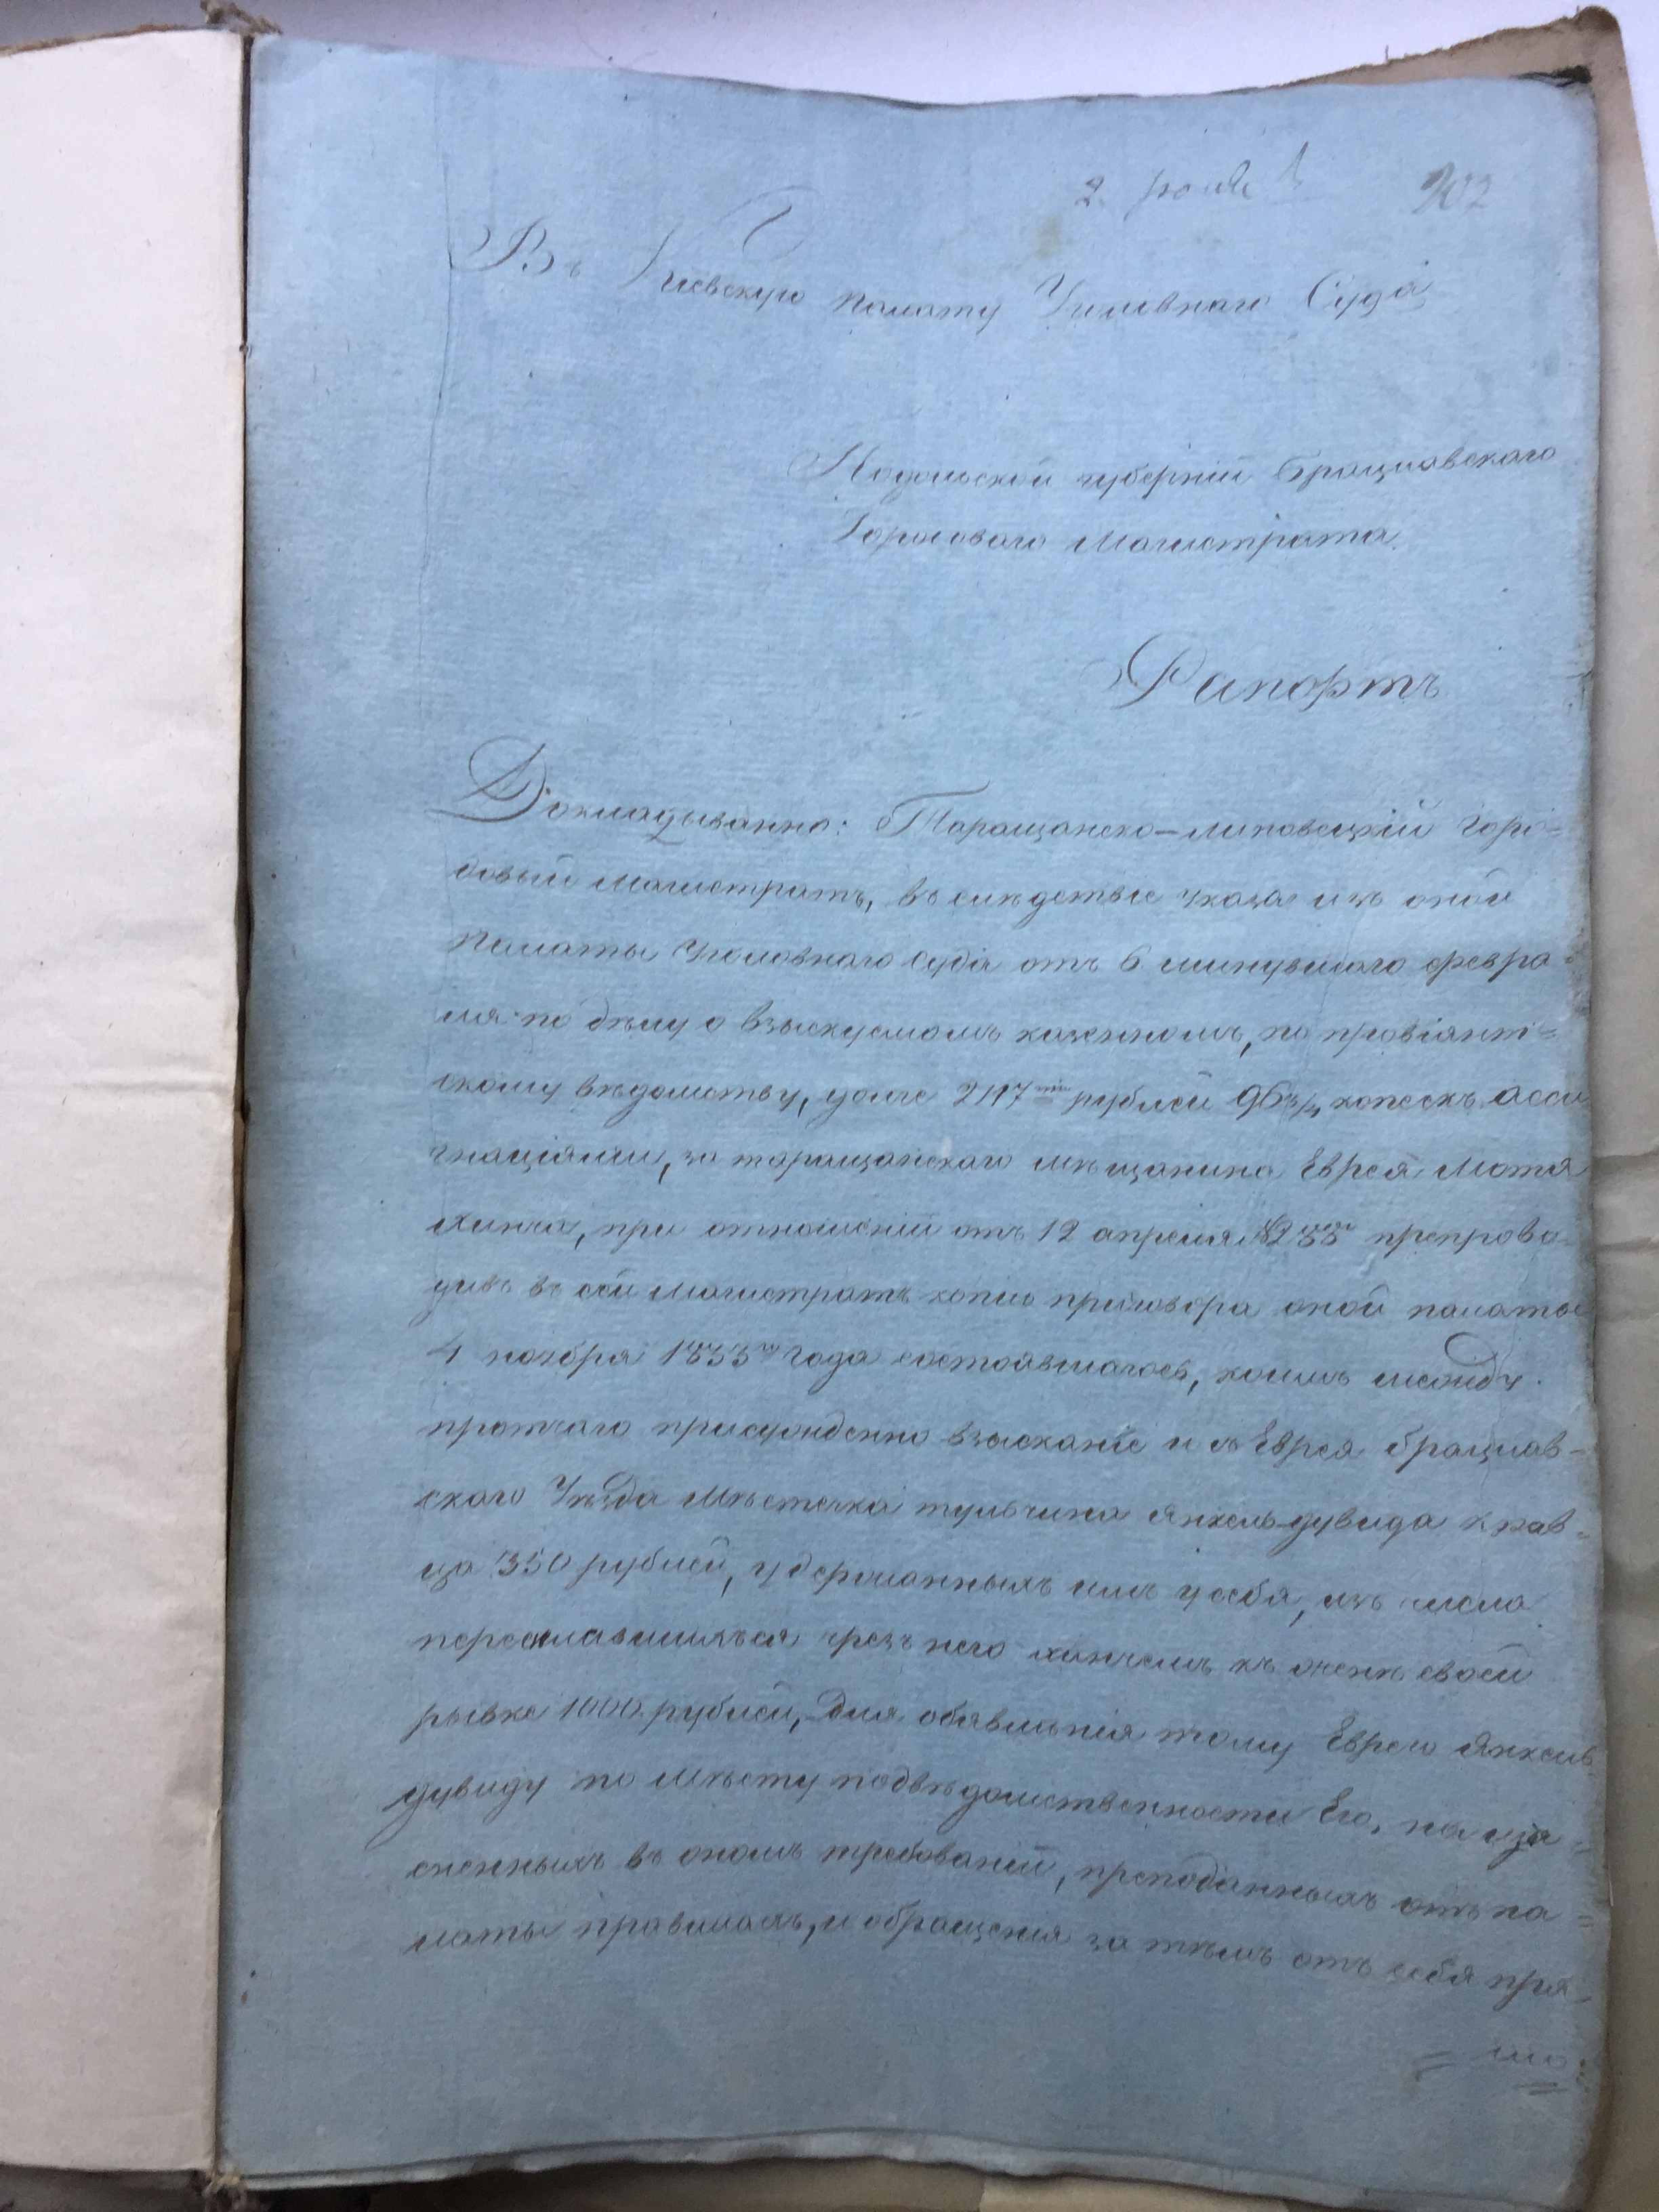 202
Въ Кіевскую Палату Уголовнаго Суда
Подольской губерніи Брацлавскаго
Городоваго Магистрата
Рапортъ
Докладыванно: Таращанско-липовецкій горо=
довый магистратъ, въ слѣдствіе указа изъ оной
Палаты Уголовнаго Суда отъ 6 минувшаго февра=
ля по дѣлу о взыскуемомъ казенномъ, по провіянт=
скому вѣдомству, долге 2117 рублей 96¾ копеекъ асси
гнаціями, за таращанскаго мѣщанина Еврея Мотя
Хинча, при отношеніи отъ 12 апреля препрово
дивъ въ сей магистратъ копію приговора оной палаты
4 ноября 1833го года состоявшагося, коимъ между
протчаго присужденно взысканіе и съ Еврея брацлав=
скаго Уѣзда мѣстечка тульчина Янкель-дувида крав=
ца 350 рублей, удержанныхъ имъ у себя, изъ числа
пересылавшихъся чрезъ него Хинчемъ къ женѣ своей
рывке 1000 рублей, для обявленія тому Еврею Янкель
дувиду по мѣсту подвѣдомственности Его, на изя=
сненныхъ въ ономъ требованій, преподанныхъ отъ па=
латы правилахъ, и обращенія за тѣмъ отъ себя пря=
= мо